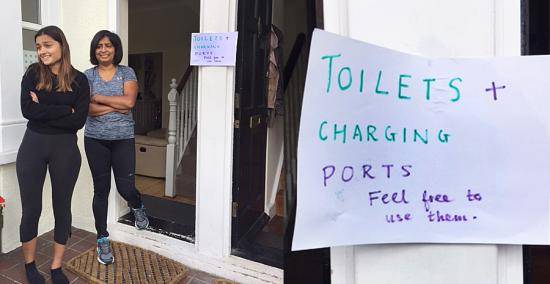 TOILETS +
CHARGING
PORTS
Feel free to
use them.
TOILETS +
CHARGING
PORTS
Feel free to
use them.